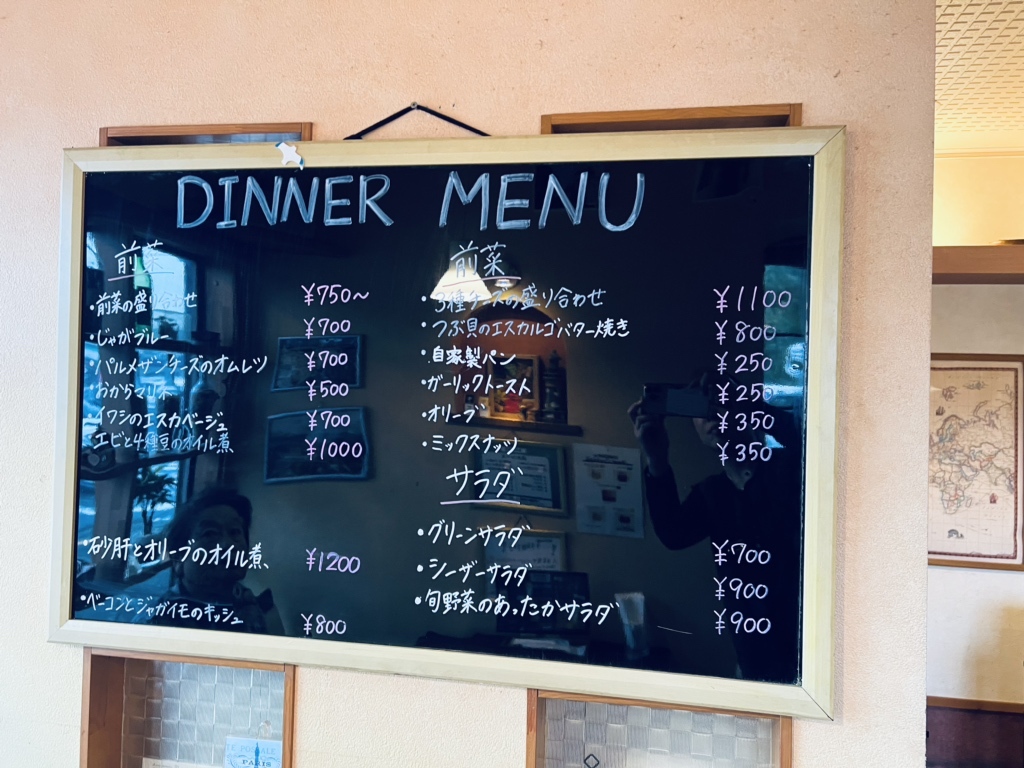 DINNER MENU
前菜
・前菜の盛り合わせ ¥750〜
・じゃがブルー ¥700
・パルメザンチーズのオムレツ ¥700
・おからマリネ ¥500
・イワシのエスカベージュ ¥700
・エビと4種豆のオイル煮 ¥1000
・砂肝とオリーブのオイル煮、 ¥1200
・ベーコンとジャガイモのキッシュ ¥800
前菜
・3種チーズの盛り合わせ ¥1100
・つぶ貝のエスカルゴバター焼き ¥800
・自家製パン ¥250
・ガーリックトースト ¥250
・オリーブ ¥350
・ミックスナッツ ¥350
サラダ
・グリーンサラダ ¥700
・シーザーサラダ ¥900
・旬野菜のあったかサラダ ¥900
PARIS